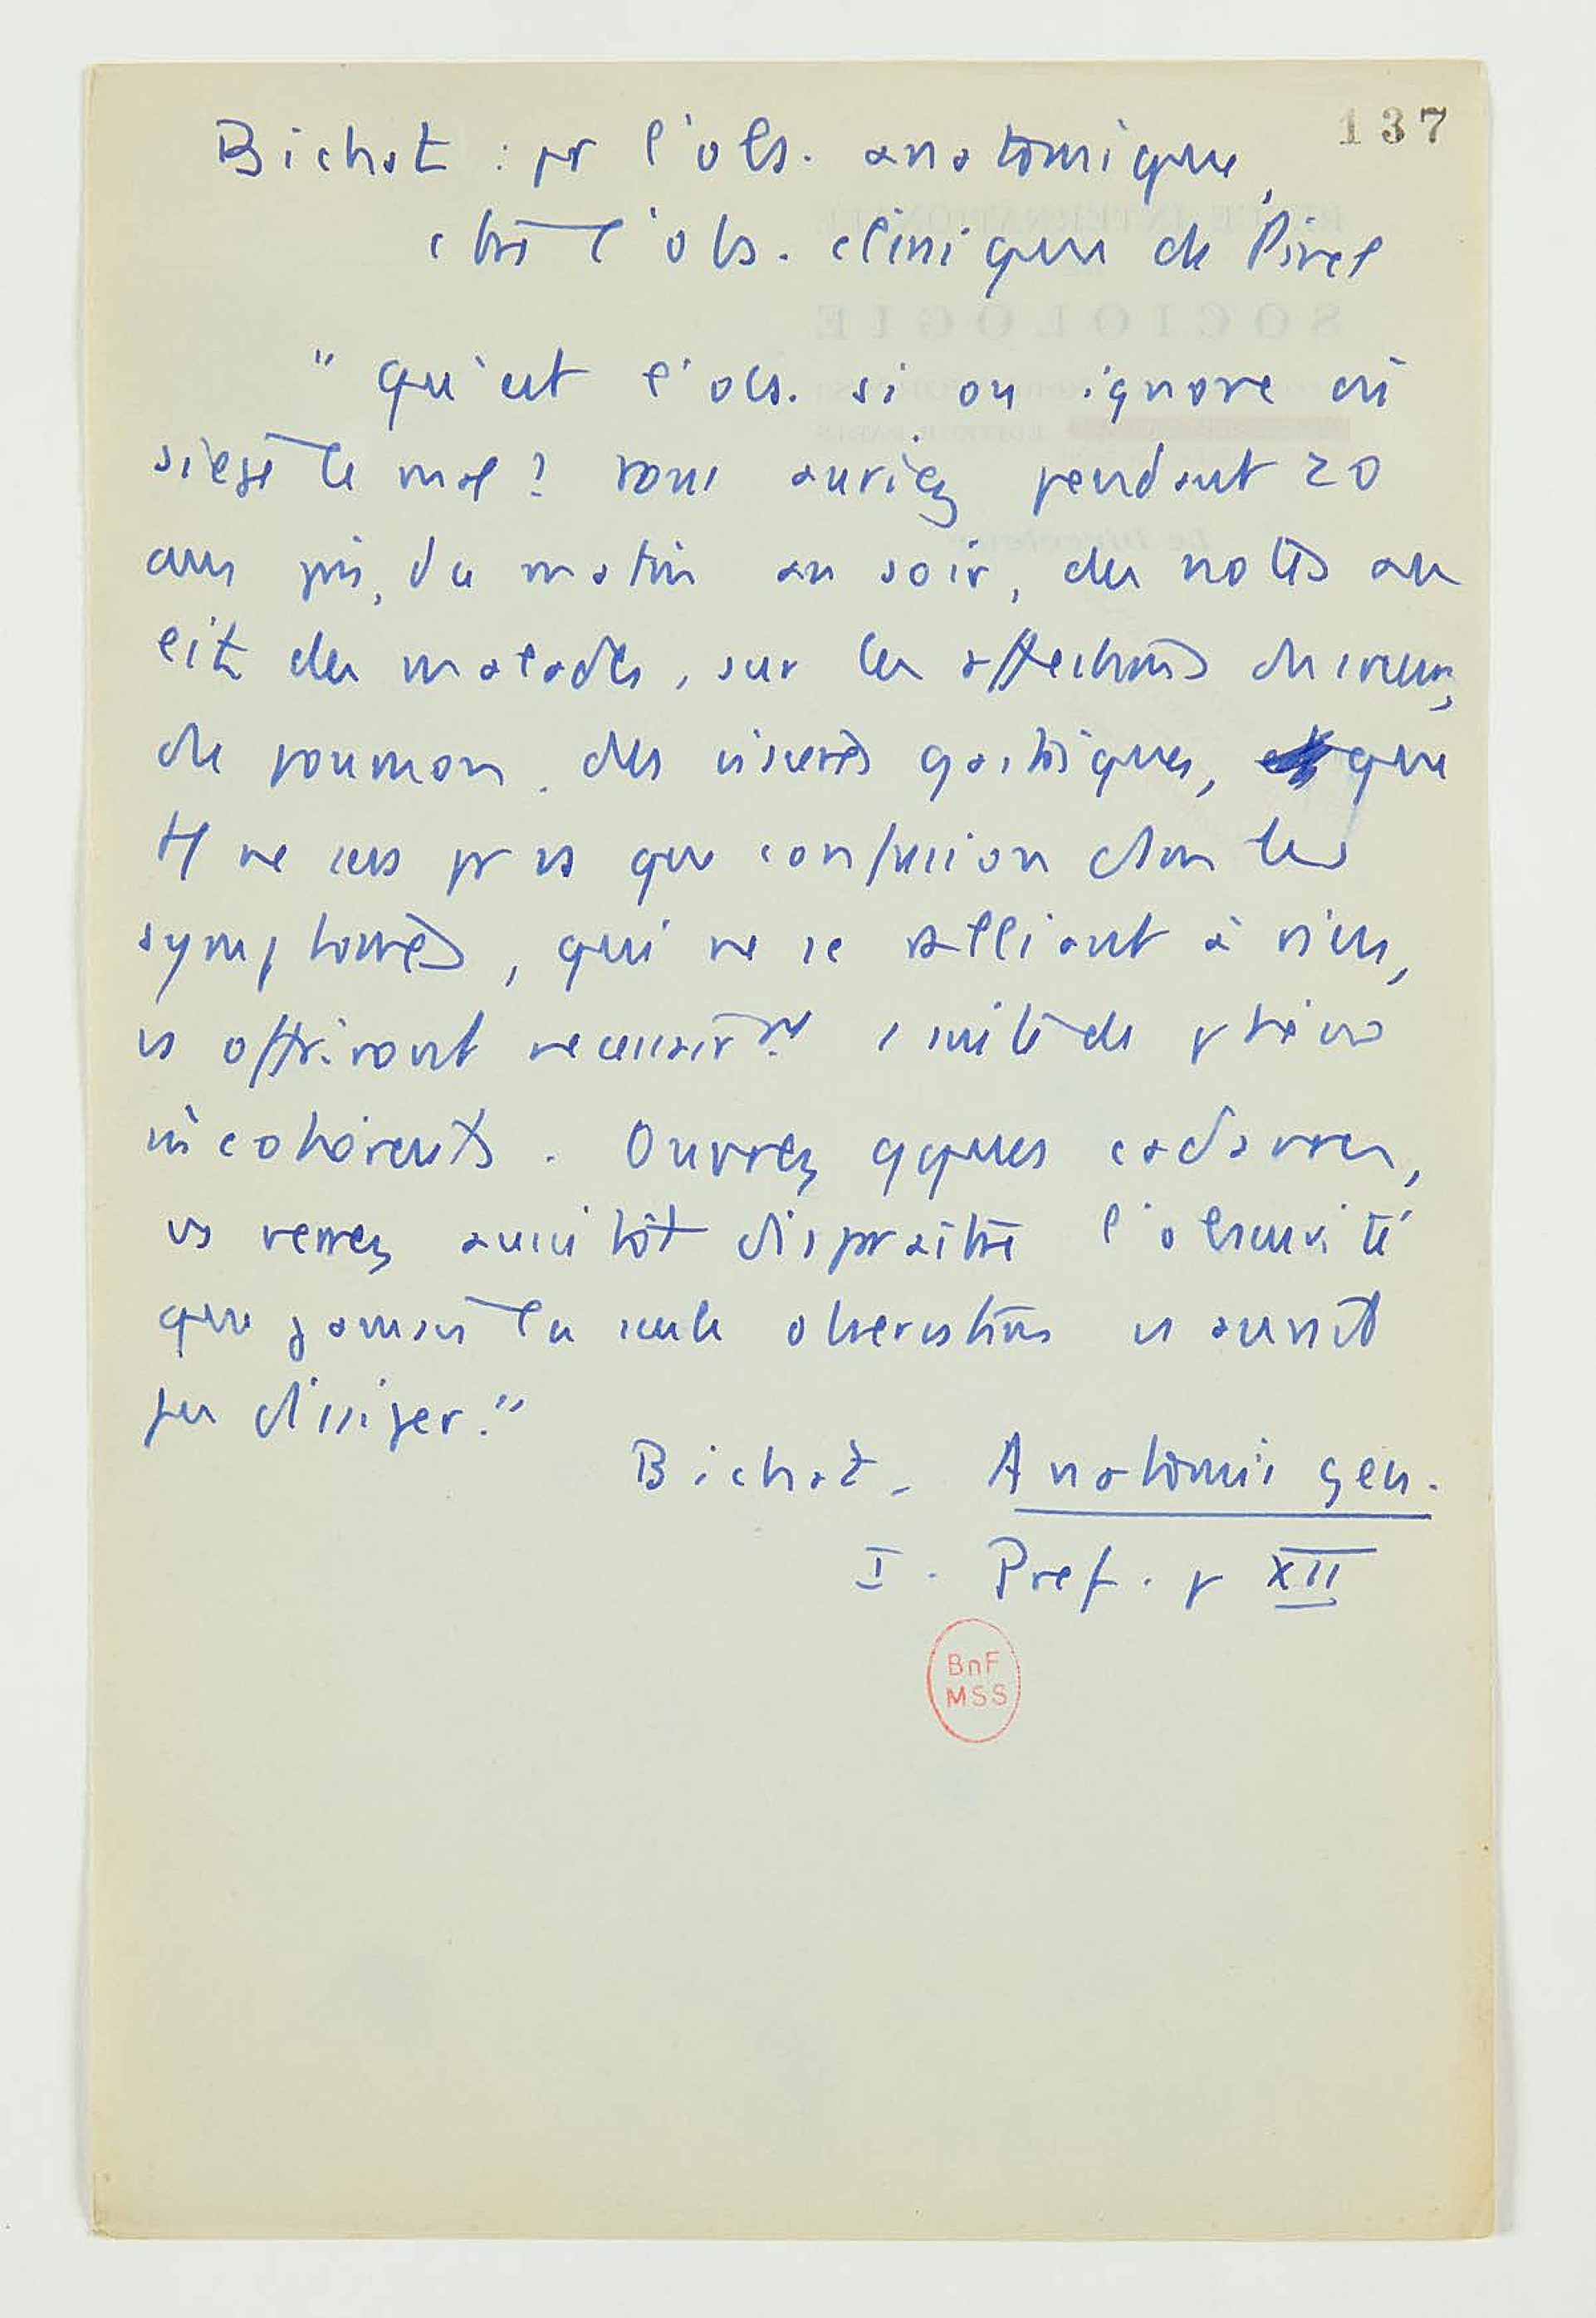 137
Bichat : pr l'obs. anatomique,
ctre l'obs. clinique de Pinel
"Qu'est l'obs. si on ignore où
siège le mal ? Vous auriez pendant 20
ans pris, du matin au soir, des notes au
lit des malades, sur les affections du cœur,
du poumon, des viscères gastriques, que
tt ne sera pr vs que confusion dans les
symptômes, qui ne se ralliant à rien,
vs offriront nécessairmt 1 suite de phénom
incohérents. Ouvrez qques cadavres,
vs verrez aussitôt disparaître l'obscurité
que jamais la seule observation n'aurait
pu dissiper."
Bichat. Anatomie gen.
I. Pref. p XII
BnF
MSS